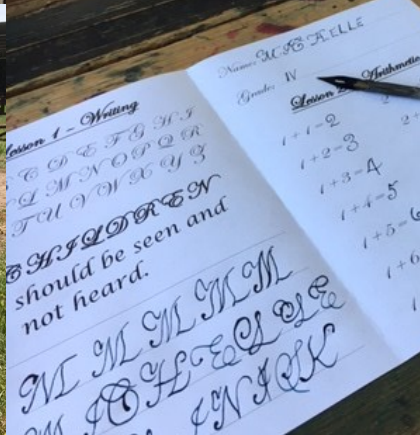 Lesson 1 - Writing
C D E F G H I
L M N O P Q R
T U V W X Y Z
CHILDREN
should be seen and
not heard.
M M M M M
M I C H E L L E
I N I N K
Name: MÆ AELLE
Grade: IV
Lesson Arithmetic
1+1=2
1+2=3
1+3=4
1+4=5
1+5=6
1+6